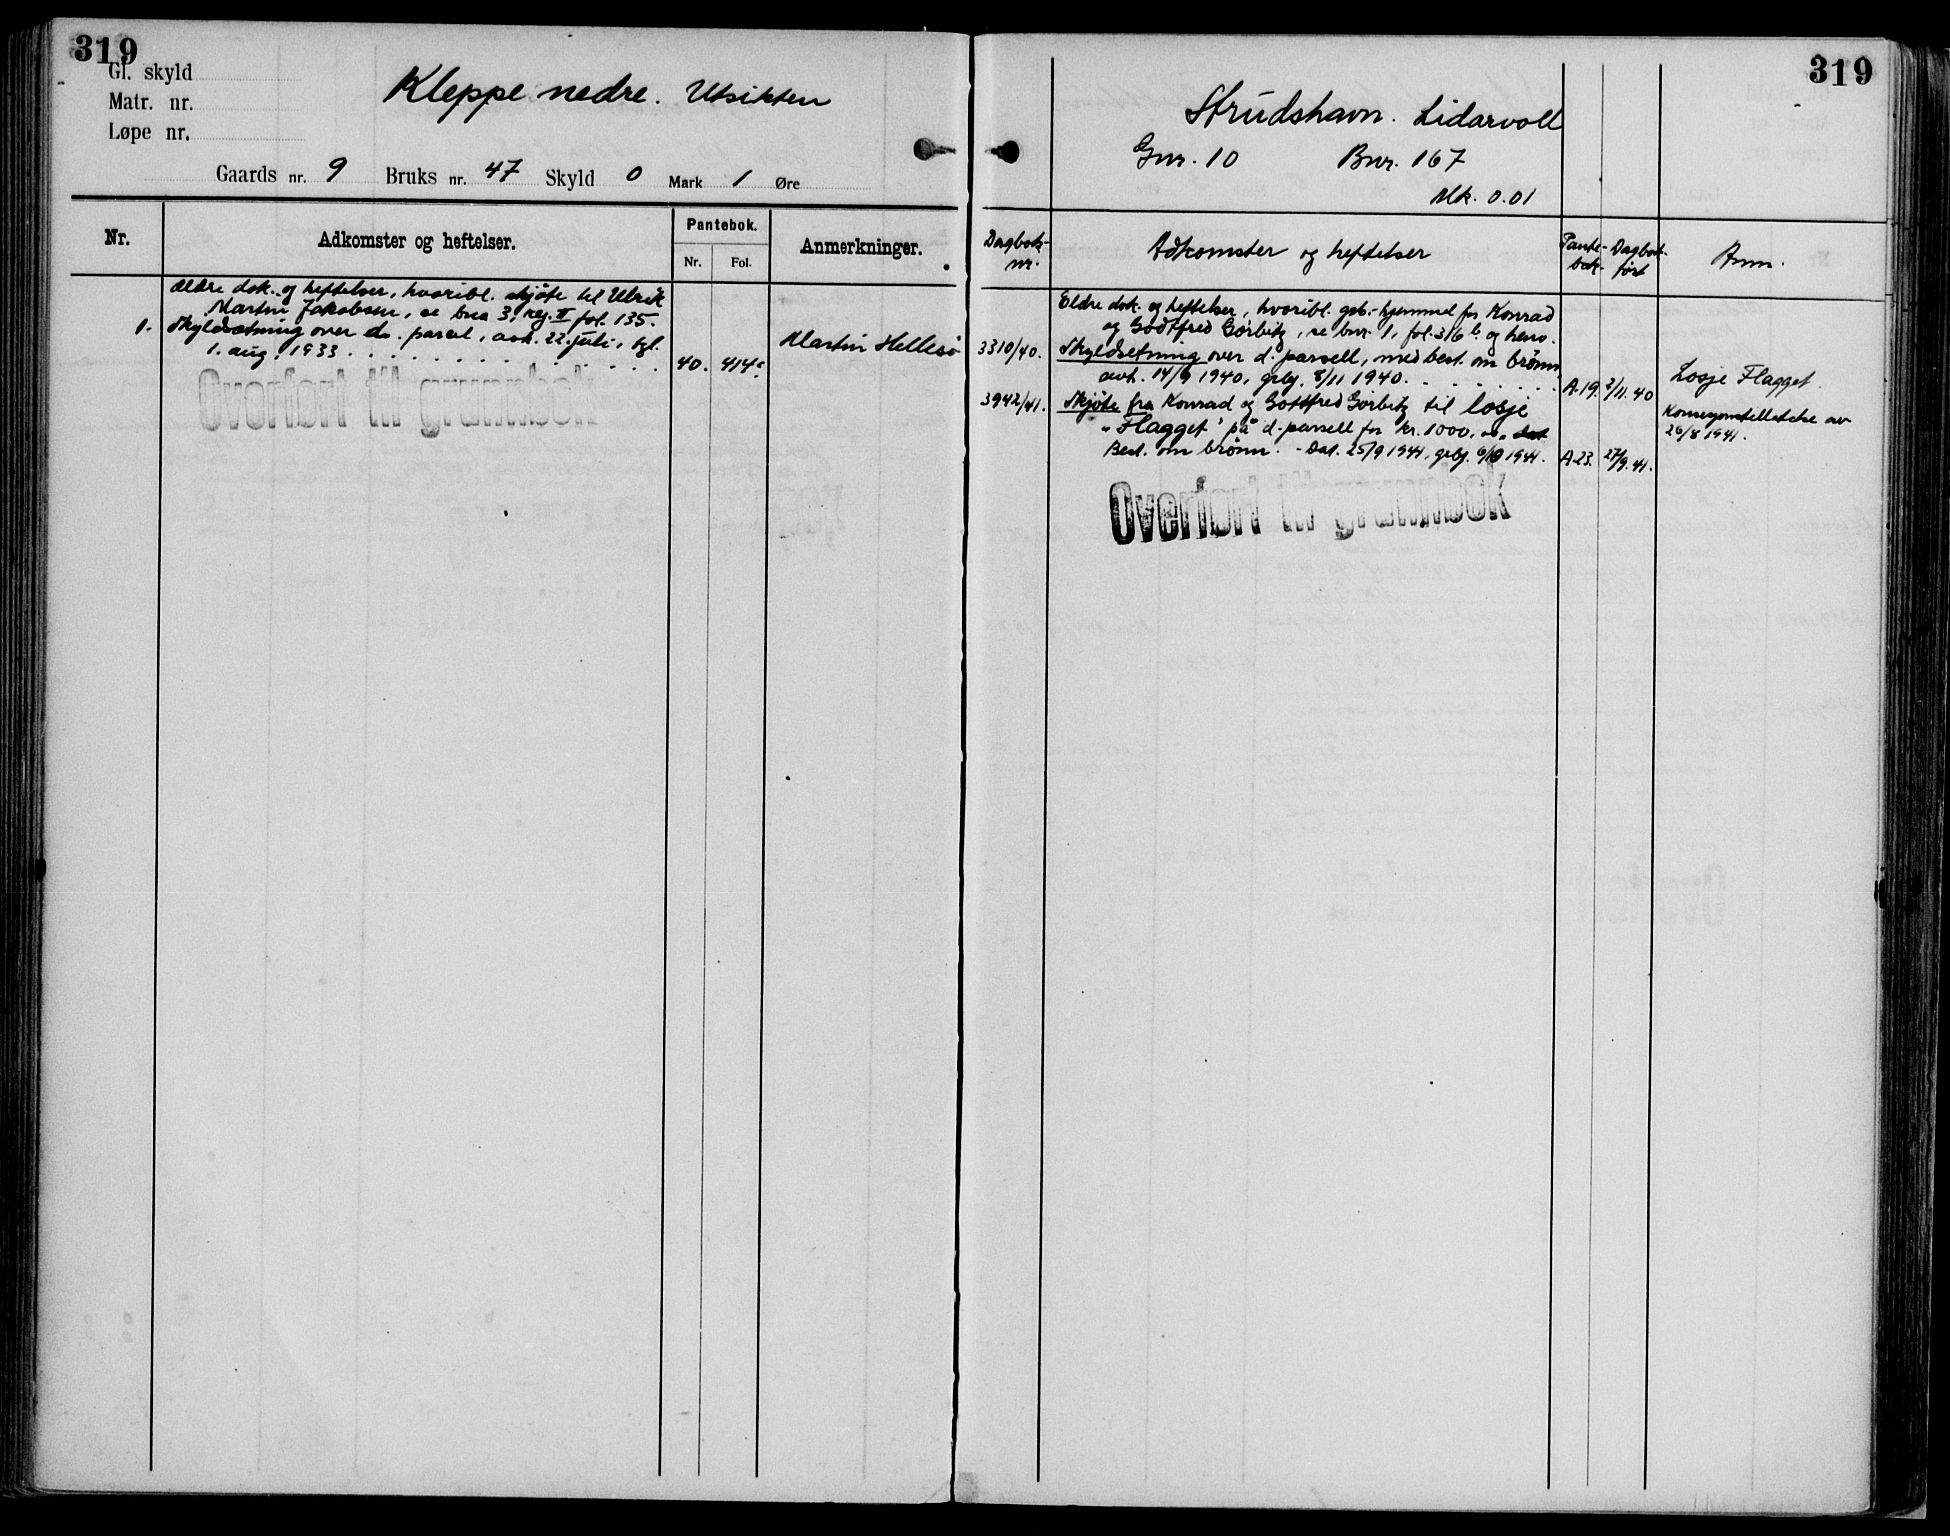 319
Gl. skyld
Matr. nr.
Løpe nr.
Kleppe nedre. Utsikten
Gaards nr. 9 Bruks nr. 47 Skyld 0 Mark 1 Øre
Nr.
Adkomster og heftelser.
Pantebok.
Nr. Fol.
Anmerkninger.
Ældre dok. og heftelser, hvoribl. skjøte til Ulrik
Martin Jakobsen, se bn 3, reg. II fol. 135.
1. Skyldsætning over d. parcel, avh. 22. juli, tgl.
1. aug. 1933 . . . . . . . . . . . . 40. 414
Martin Hellesø
Overført til grunnbok
319
Strudshavn. Lidarvoll
Gnr. 10 Bnr. 167
Mk. 0.01
Dagbok-
nr.
Adkomster og heftelser
Pante-
bok.
Dagbok-
ført
Anm.
Eldre dok. og heftelser, hvoribl. grb.-hjemmel for Konrad
og Godtfred Gørbitz, se bnr. 1, fol. 316 b og henv.
3310/40. Skyldsetning over d. parsell, med best. om brønn,
avh. 14/9 1940, grbg. 8/11 1940. . . . . . . . A.19. 2/11.40
Losje Flagget.
3942/41. Skjøte fra Konrad og Gottfred Gørbitz til losje
„Flagget" på d. parsell for kr. 1000,
Best. om brønn. - Dat. 25/9 1941, grbg. 6/10 1941. A.23. 27/9.41.
Konsesjonstillatelse av
26/8 1941.
Overført til grunnbok